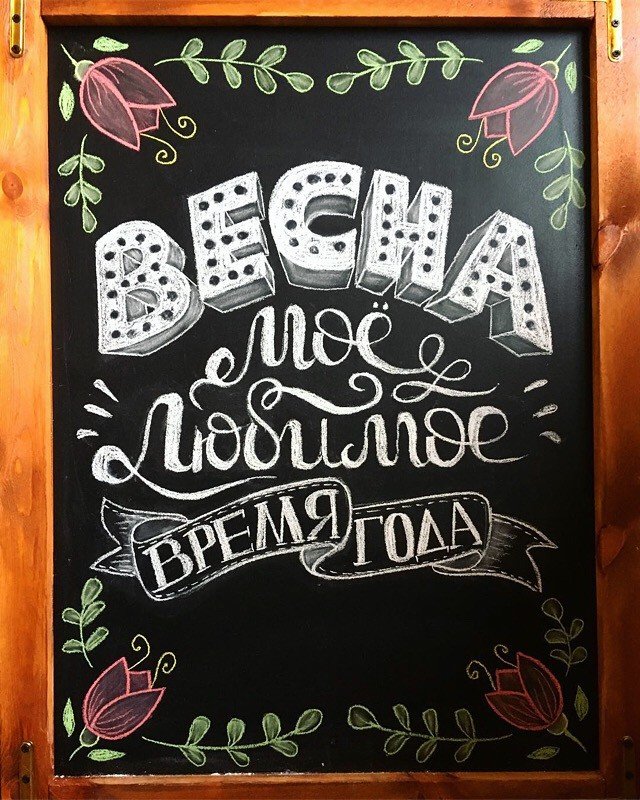 ВЕСНА
моё
любимое
ВРЕМЯ ГОДА